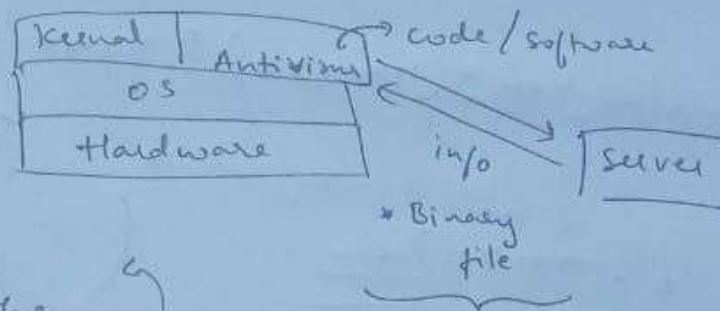 Kernal Antivirus code/software
OS
Hardware info Server
* Binary
file